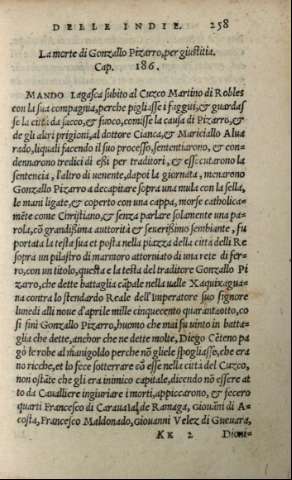 DELLE INDIE. 258
La morte di Gonzallo Pizarro, per giustitia.
Cap. 186.
MANDO Lagasca subito al Cuzco Martino di Robles
con la sua compagnia, perche pigliasse i faggui, & guardas
se la città da sacco, & fuoco, comisse la causa di Pizarro, &
de gli altri prigioni, al dottore Cianca, & Mariciallo Alua
rado, liquali facendo il suo processo, sententiarono, & con-
dennarono tredici di essi per traditori, & essecutarono la
sentencia, l'altro di uenente, dapoi la giornata, menarono
Gonzallo Pizarro a decapitare sopra una mula con la sella,
le mani ligate, & coperto con una cappa, morse catholica-
mēte come Christiano, & senza parlare solamente una pa-
rola, cō grandissima auttorità & seuerissimo sembiante, fu
portata la testa sua et posta nella piazza della città delli Re
sopra un pilastro di marmoro attorniato di una rete di fer-
ro, con un titolo, questa e la testa del traditore Gonzallo Pi
zarro, che dette battaglia cāpale nella ualle Xaquixagua-
na contra lo stendardo Reale dell'Imperatore suo signore
lunedi alli noue d'aprile mille cinquecento quarantaotto, co
si finì Gonzallo Pizarro, huomo che mai fu uinto in batta-
glia che dette, anchor che ne dette molte, Diego Cēteno pa
gò le robe al manigoldo perche nō gliele spogliasso, che era
no ricche, et lo fece sotterrare cō esse nella città del Cuzco,
non ostāte che gli era inimico capitale, dicendo nō essere at
to da Caualliere ingiuriare i morti, appiccarono, & fecero
quarti Francesco di Carauaial, de Ramaga, Giouāni di A-
costa, Francesco Maldonado, Giouanni Velez di Gueuara,
KK 2 Dioni-